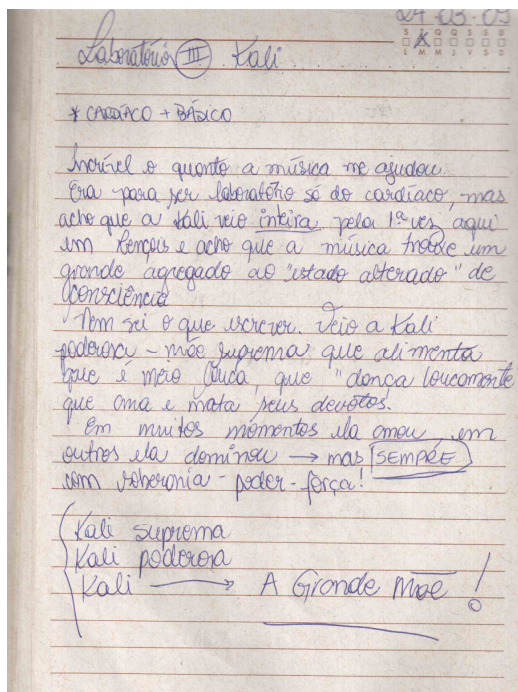 24-03-09
S T Q Q S S D
L M M J V S D
Laboratório III Kali
* CARDÍACO + BÁSICO
Incrível o quanto a música me ajudou.
Era para ser laboratório só do cardíaco, mas
acho que a Kali veio inteira pela 1ª vez aqui
em Lençois e acho que a música trouxe um
grande agregado ao "estado alterado" de
consciência
Nem sei o que escrever. Veio a Kali
poderosa - mãe suprema que alimenta
que é meio louca, que "dança loucamente
que ama e mata seus devotos.
Em muitos momentos ela amou, em
outros ela dominou → mas SEMPRE
com soberania - poder - força!
Kali suprema
Kali poderosa
Kali → A Grande Mãe!